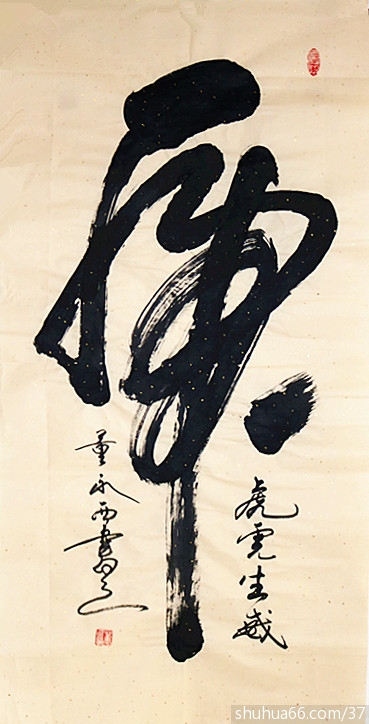 虎
虎虎生威
董永西書之
shuhua66.com/37